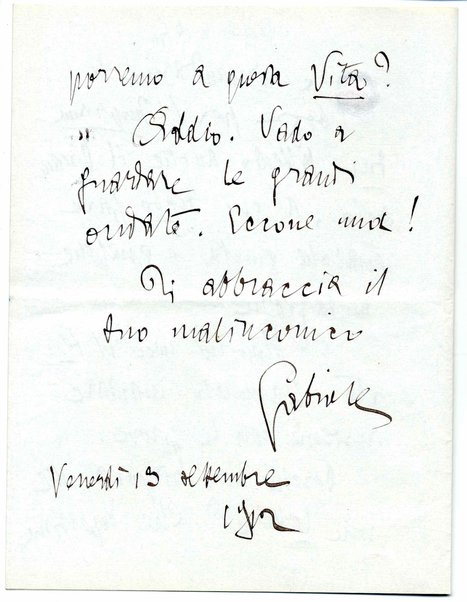 porremo a questa Vita?
" Addio. Vado a
guardare le grandi
ondate. Eccone una!
Ti abbraccia il
tuo malinconico
Gabriele
Venerdì 13 settembre
1912